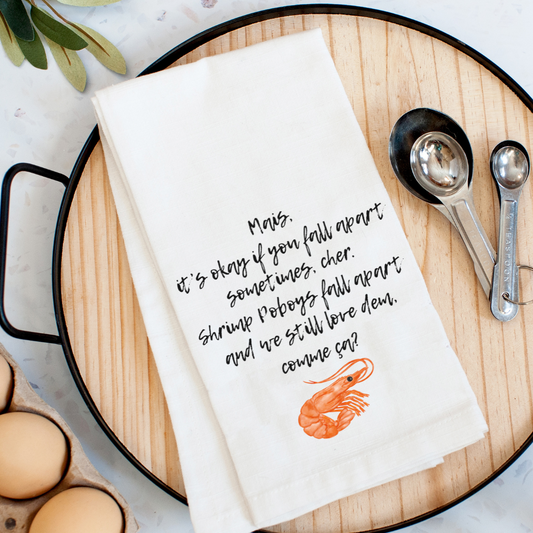 Mais,
it's okay if you fall apart
sometimes, cher.
Shrimp Poboys fall apart
and we still love dem,
comme ça?